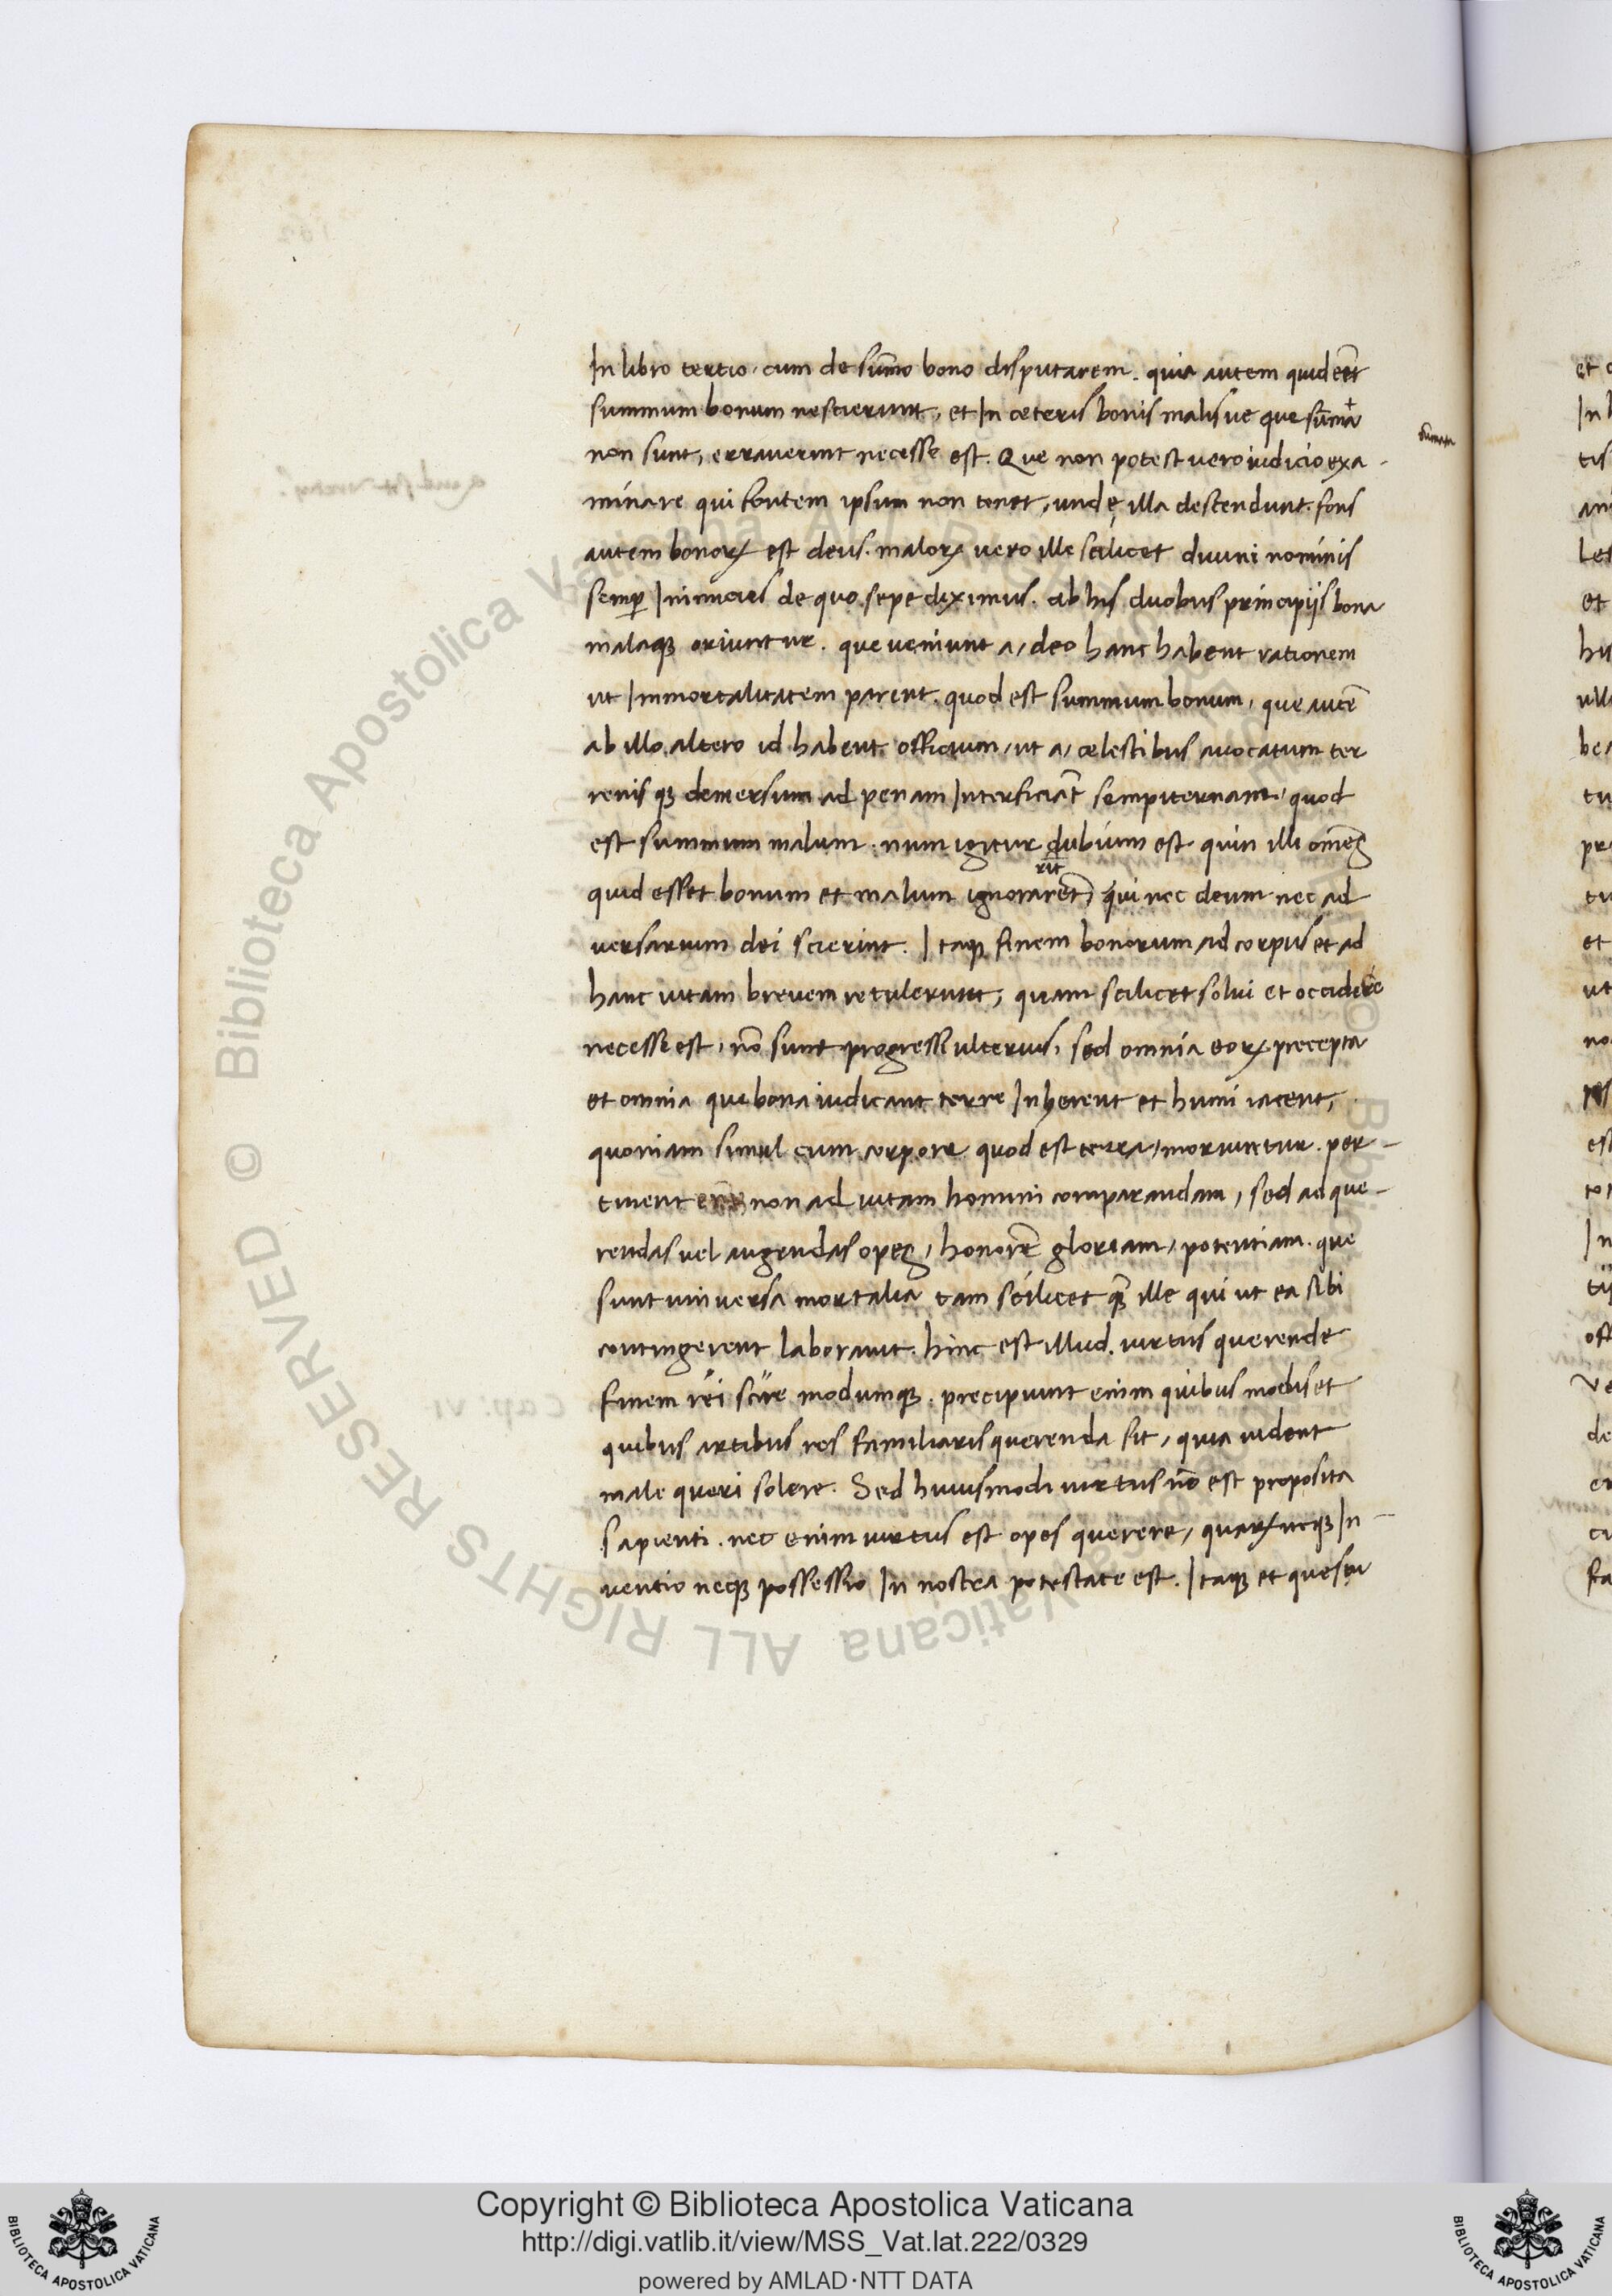 In libro tertio cum de sum̃o bono disputarem. quia autem quid eẽt
summum bonum nescierunt, et In ceteris bonis malisue que sum̃a
sum̃a
non sunt, errauerint necesse est. Que non potest uero iudicio exa-
minare qui fontem ipsum non tenet, unde illa descendunt. fons
autem bonoꝝ est deus. maloꝝ uero ille scilicet diuini nominis
semꝑ Inimicus de quo sepe diximus. ab his duobus principijs bona
malaqꝫ oriuntur. que ueniunt a/ deo hanc habent rationem
ut Immortalitatem parent. quod est summum bonum, que autẽ
ab illo altero id habent officium/ ut a/ celestibus auocatum ter
renisqꝫ demersum ad penam Interficiãt sempiternam. quod
est summum malum. num igitur dubium est quin illi om̃es
rĩt
quid esset bonum et malum ignorarent qui nec deum nec ad
uersarium dei scierint. Itaqꝫ finem bonorum ad corpus et ad
hanc uitam breuem retulerunt, quam scilicet solui et occidere
necesse est, nõ sunt progressi ulterius, sed omnia eoꝝ precepta
et omnia que bona iudicant terre Inherent et humi iacent,
quoniam simul cum corpore quod est terra/ moriuntur. per-
tinent eni non ad uitam homini comparandam, sed ad que-
rendas uel augendas opes, honorẽ gloriam, potentiam. que
sunt uniuersa mortalia tam scilicet qꝫ̃ ille qui ut ea sibi
contingerent laborauit. hinc est illud. uirtus querende
finem rei scire modumqꝫ. precipiunt enim quibus modis et
quibus artibus res familiaris querenda sit, quia uident
male queri solere. Sed huiusmodi uirtus nõ est proposita
sapienti. nec enim uirtus est opes querere, quaꝝ neqꝫ In-
uentio neqꝫ possessio In nostra potestate est. Itaqꝫ et quesitu
Copyright © Biblioteca Apostolica Vaticana
http://digi.vatlib.it/view/MSS_Vat.lat.222/0329
powered by AMLAD·NTT DATA
BIBLIOTECA APOSTOLICA VATICANA
BIBLIOTECA APOSTOLICA VATICANA
© Biblioteca Apostolica Vaticana ALL RIGHTS RESERVED